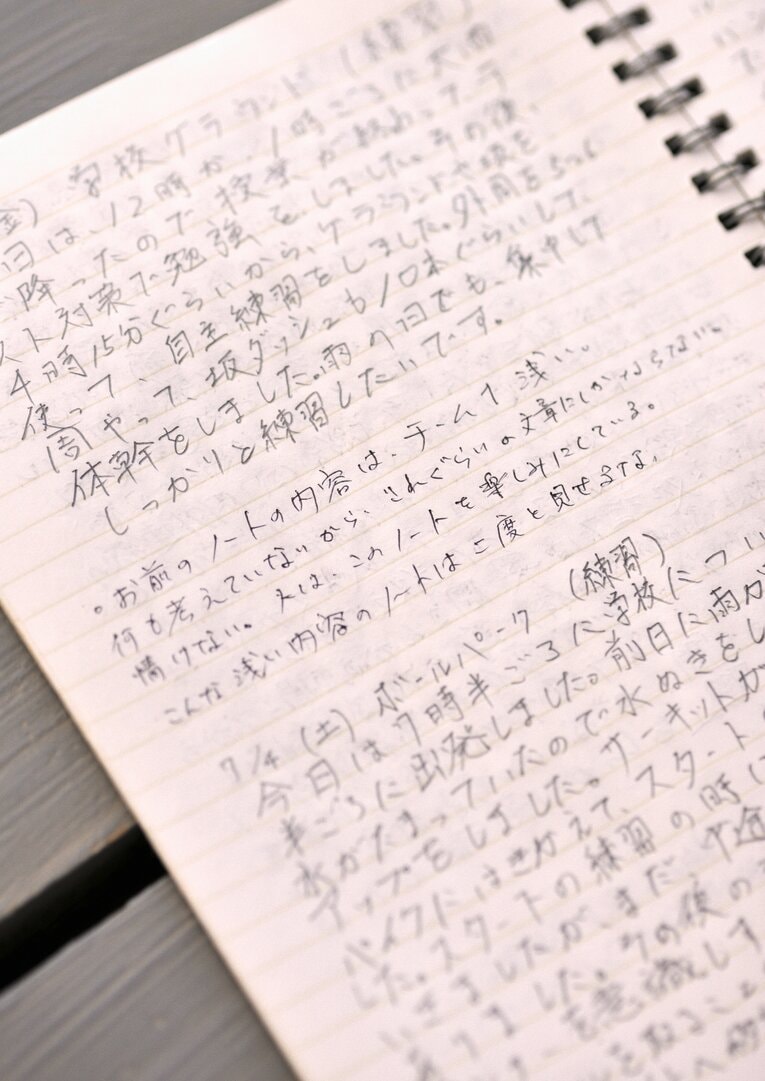 金) 学校グラウンド (練習)
日は、12時か、1時ごろに大雨
降ったので授業が終わり、テ
スト対策で勉強をしました。その後、
4時15分ぐらいから、グラウンドや坂を
使って、自主練習をしました。外周を5つ
周やって、坂ダッシュも10本ぐらいして、
体幹をしました。雨の日でも、集中して
しっかりと練習したいです。
。お前のノートの内容は、チーム1 浅い。
何も考えていないから、これぐらいの文章にしかならない。
情けない。 このノートを楽しみにしている。
こんな浅い内容のノートは二度と見せるな。
7/4 (土) ボールパーク (練習)
今日は7時半ごろに学校につい
半ごろに出発しました。前日に雨が
水がたまっていたので水ぬきをし
アップをしました。サーキットが
パイクにはきかえて、スタートの
した。スタートの練習の時に
ましたが、まだ、中途
ました。その後の
を意識しす
を取ること